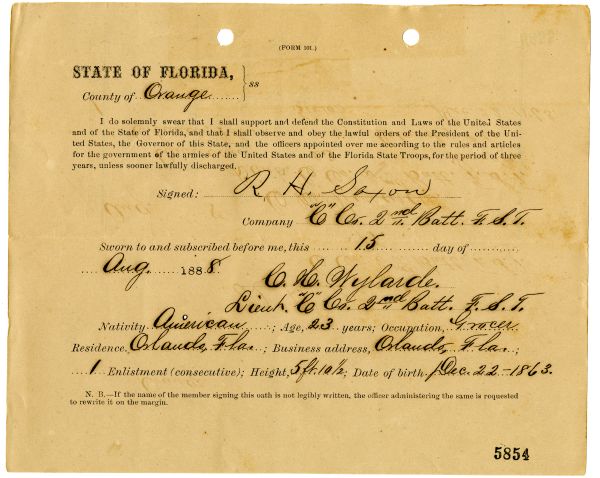 (FORM 101.)
STATE OF FLORIDA,
ss
County of Orange
I do solemnly swear that I shall support and defend the Constitution and Laws of the United States
and of the State of Florida, and that I shall observe and obey the lawful orders of the President of the Uni-
ted States, the Governor of this State, and the officers appointed over me according to the rules and articles
for the government of the armies of the United States and of the Florida State Troops, for the period of three
years, unless sooner lawfully discharged.
Signed: R. H. Saxon
Company "C" Co. 2nd Batt. F. S. T.
Sworn to and subscribed before me, this 15 day of
Aug. 1888.
C. H. Wylarde.
Lieut. "C" Co. 2nd Batt. F. S. T.
Nativity American; Age, 23 years; Occupation, Grocer
Residence, Orlando, Fla.; Business address, Orlando, Fla.
1 Enlistment (consecutive); Height, 5 ft. 10½; Date of birth, Dec. 22-1863.
N. B.—If the name of the member signing this oath is not legibly written, the officer administering the same is requested
to rewrite it on the margin.
5854